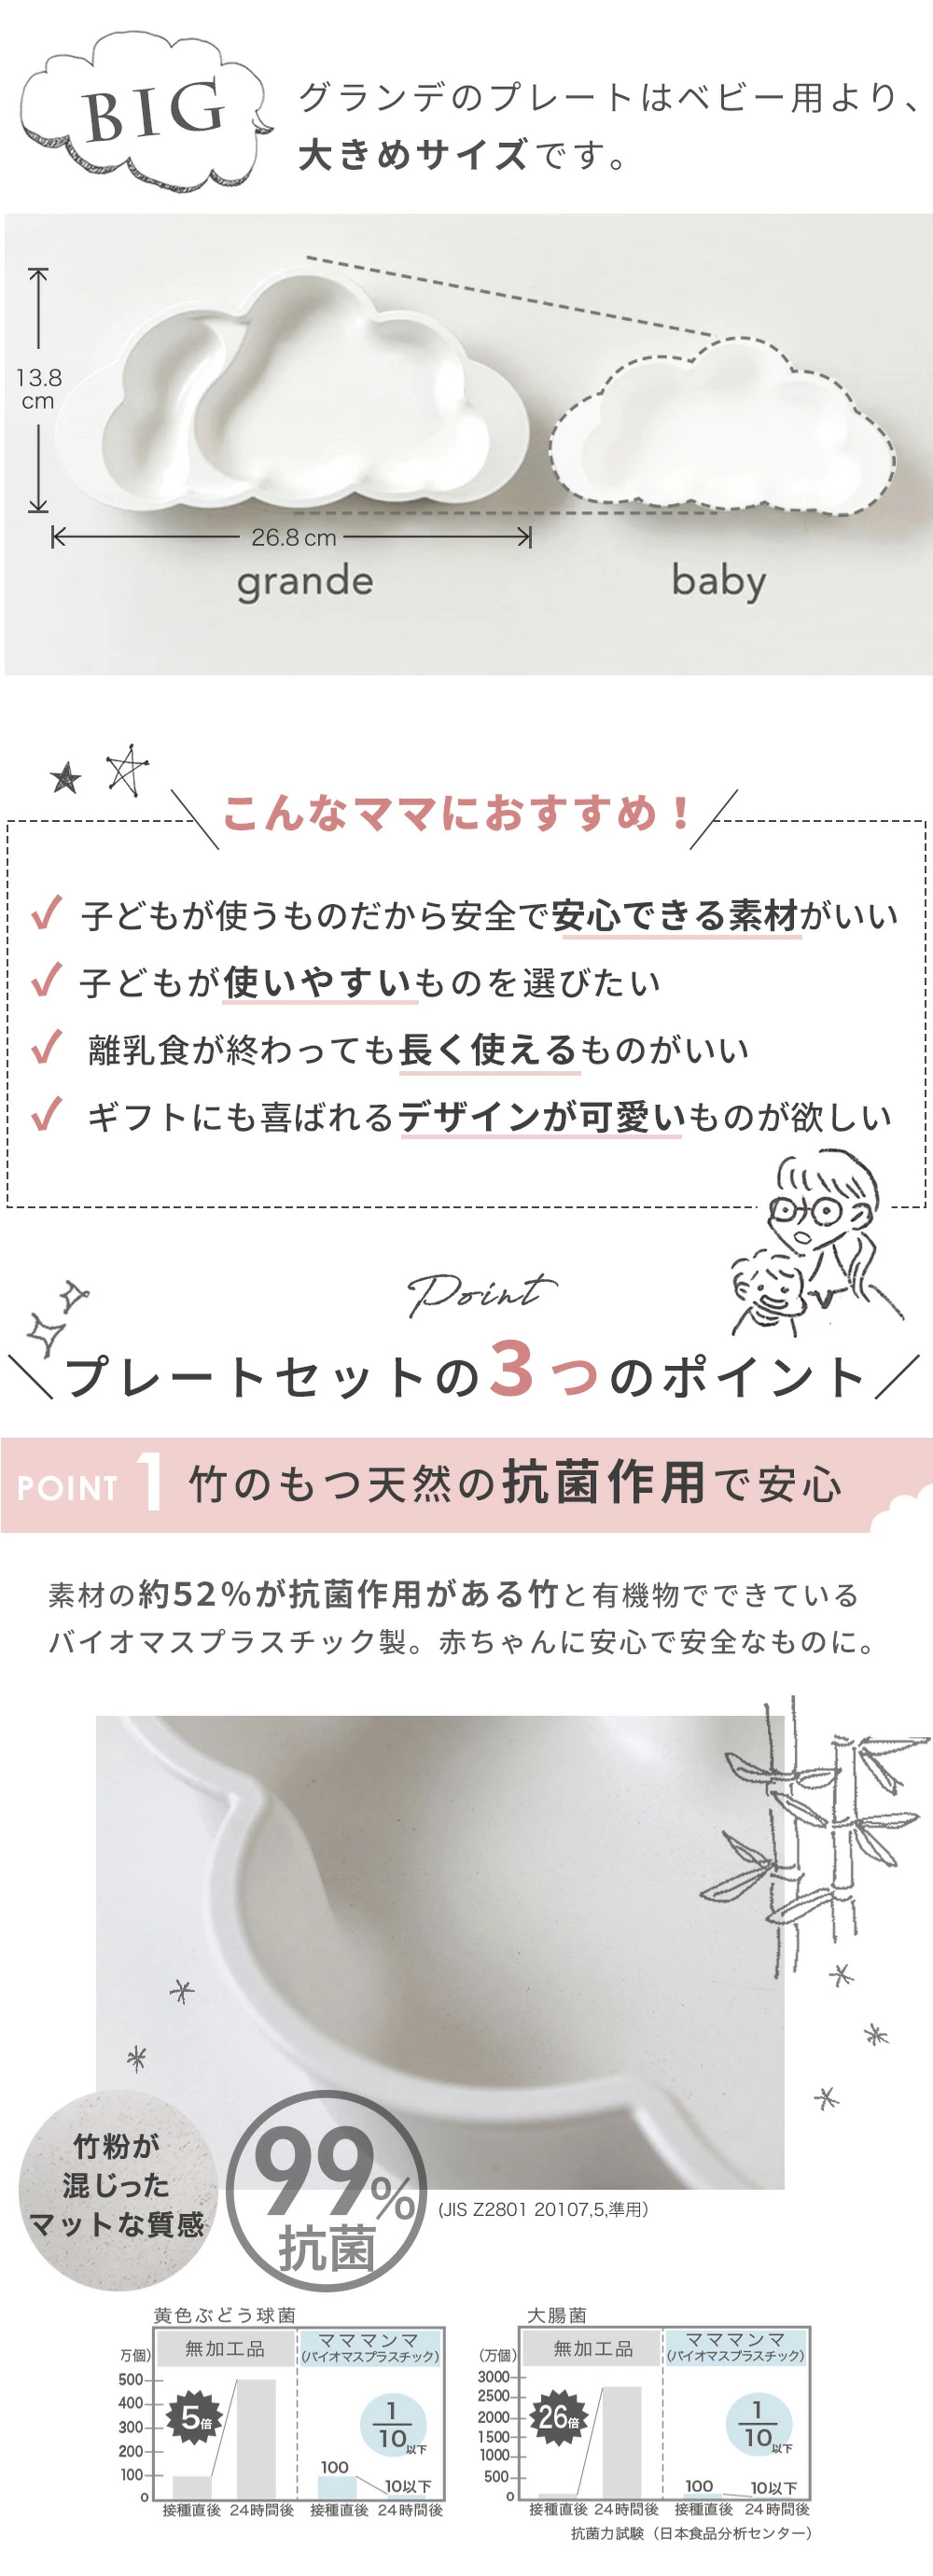 BIG
グランデのプレートはベビー用より、
大きめサイズです。
13.8
cm
26.8 cm
grande
baby
こんなママにおすすめ！
子どもが使うものだから安全で安心できる素材がいい
子どもが使いやすいものを選びたい
離乳食が終わっても長く使えるものがいい
ギフトにも喜ばれるデザインが可愛いものが欲しい
Point
プレートセットの3つのポイント
POINT 1 竹のもつ天然の抗菌作用で安心
素材の約52％が抗菌作用がある竹と有機物でできている
バイオマスプラスチック製。赤ちゃんに安心で安全なものに。
竹粉が
混じった
マットな質感
99%
抗菌
(JIS Z2801 20107,5,準用)
黄色ぶどう球菌
万個)
無加工品
マママンマ
(バイオマスプラスチック)
500
400
300
200
100
0
5倍
1
10
以下
100
10以下
接種直後 24時間後 接種直後 24時間後
大腸菌
(万個)
無加工品
マママンマ
(バイオマスプラスチック)
3000
2500
2000
1500
1000
500
0
26倍
1
10
以下
100
10以下
接種直後 24時間後 接種直後 24時間後
抗菌力試験（日本食品分析センター）